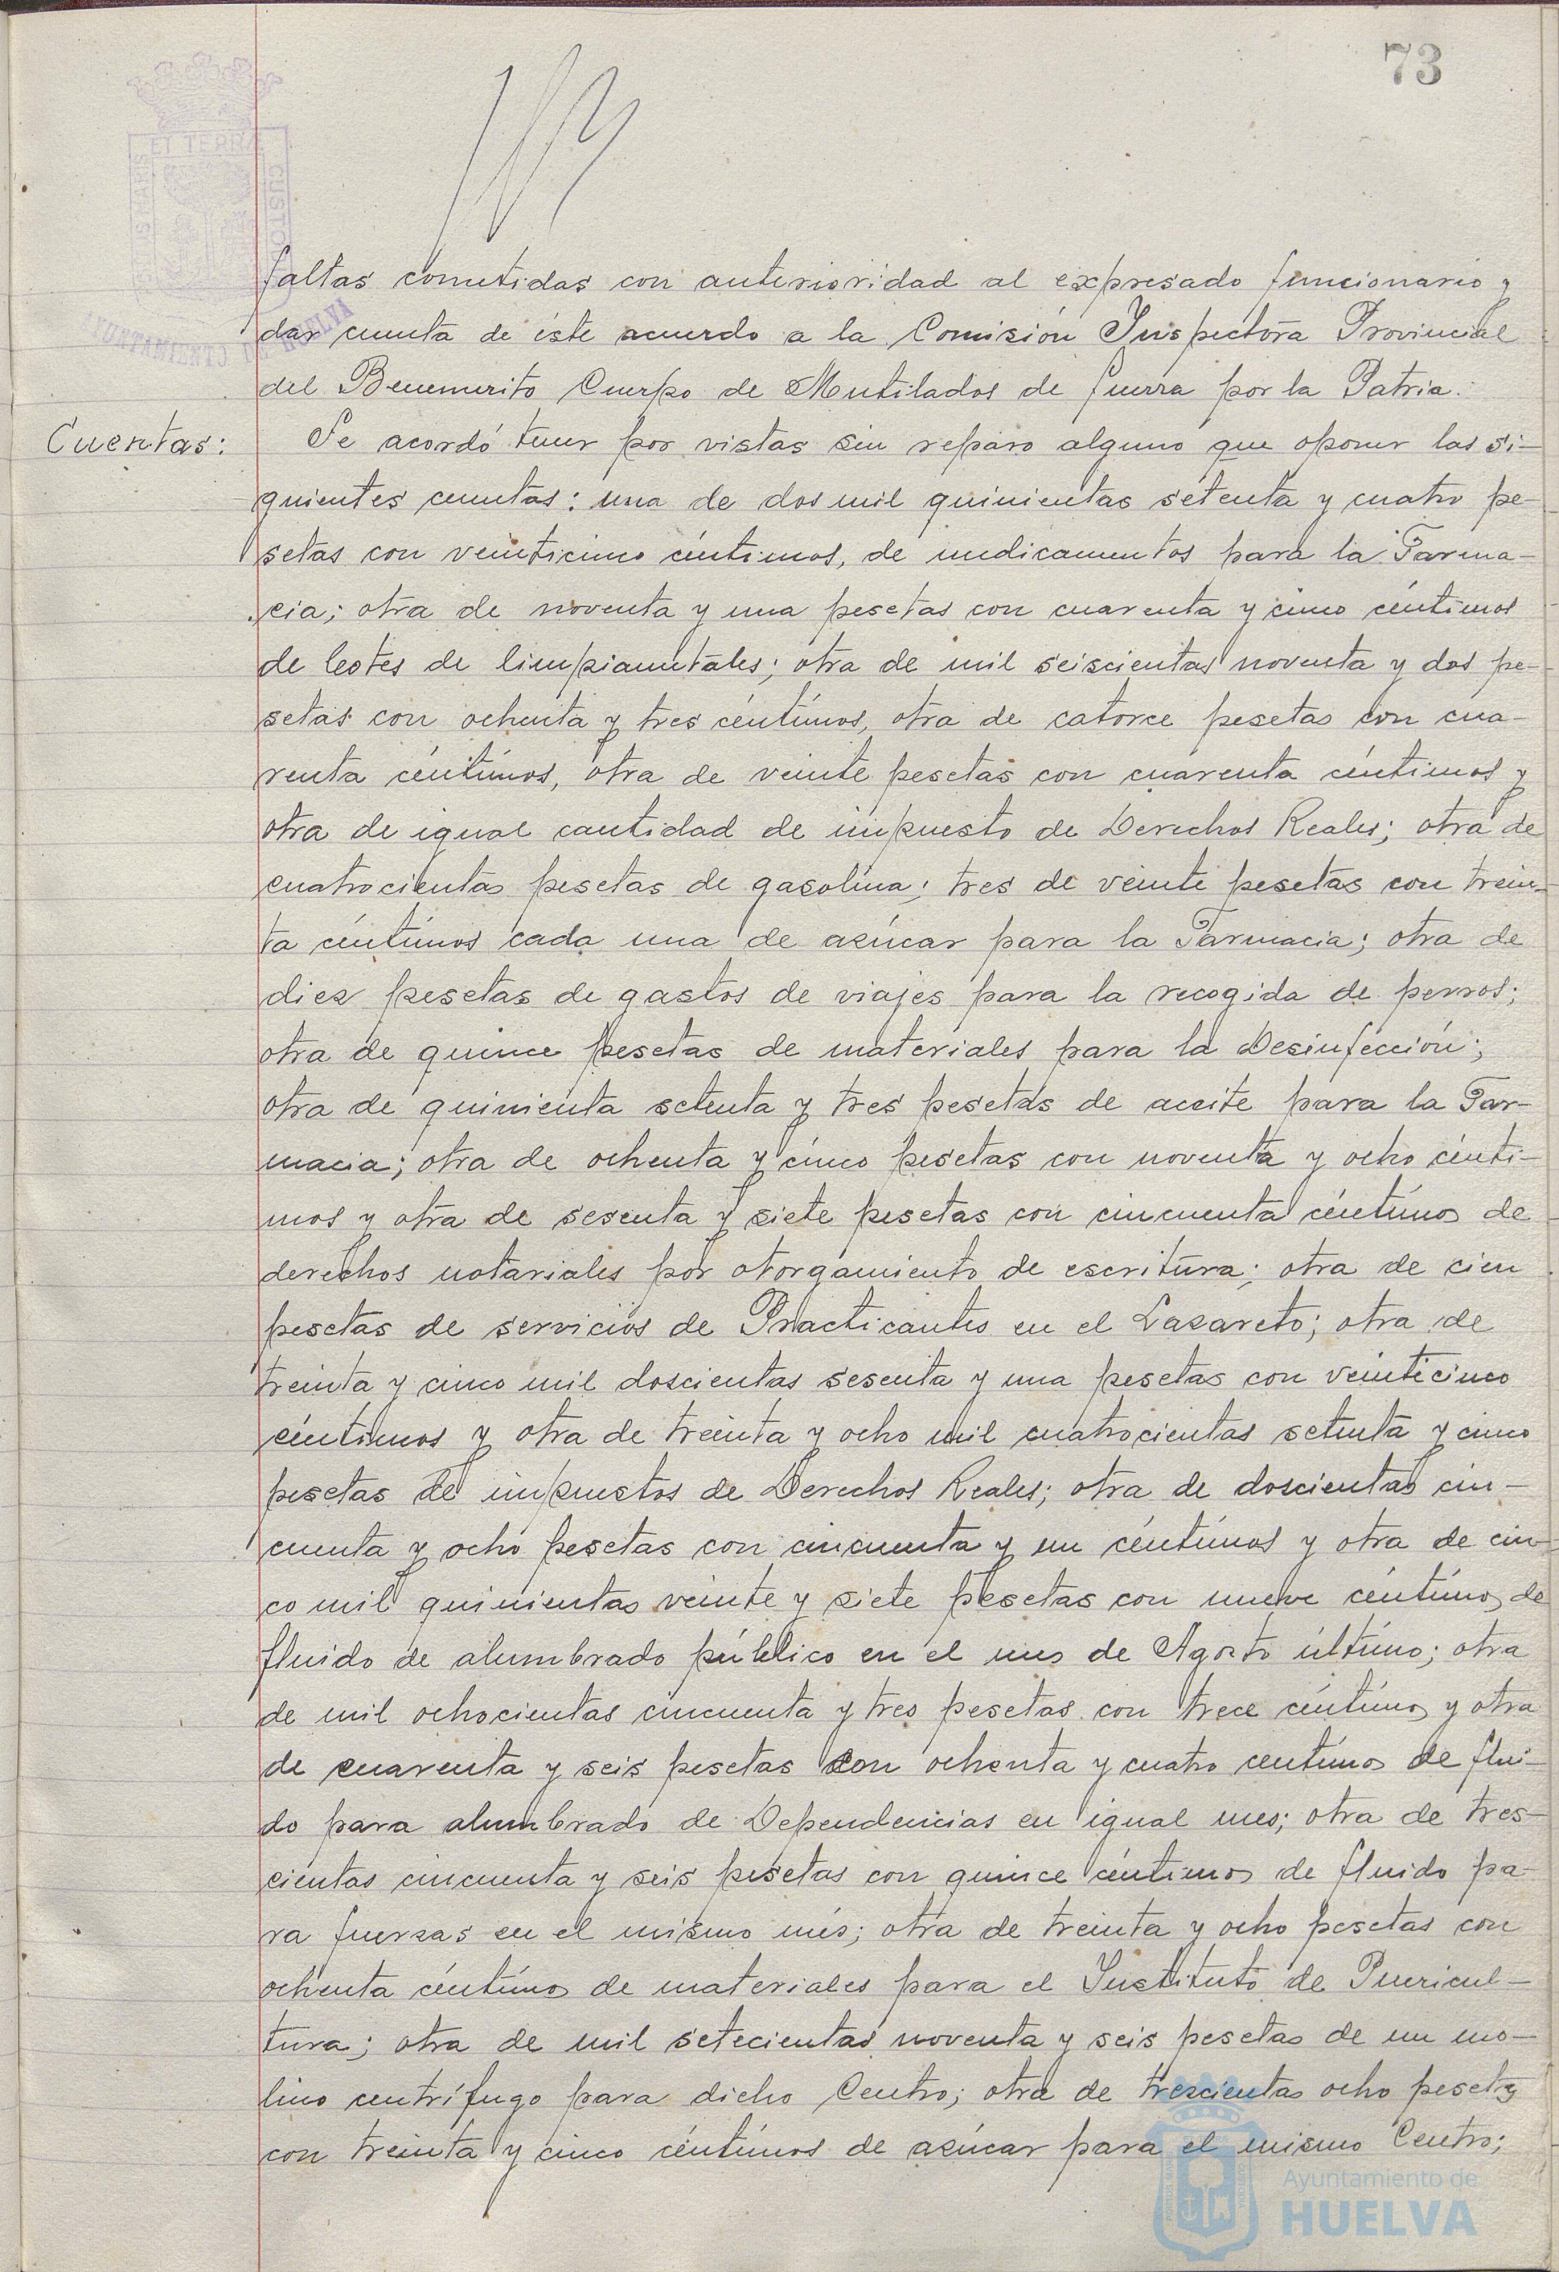 73
ET TERRA
CUSTO
AYUNTAMIENTO DE HUELVA
faltas cometidas con anterioridad al expresado funcionario y
dar cuenta de éste acuerdo a la Comisión Inspectora Provincial
del Benemerito Cuerpo de Mutilados de Guerra por la Patria.
Cuentas: Se acordó tener por vistas sin reparo alguno que oponer las si-
guientes cuentas: una de dos mil quinientas setenta y cuatro pe-
setas con veinticinco céntimos, de medicamentos para la Farma-
cia; otra de noventa y una pesetas con cuarenta y cinco céntimos
de botes de limpiametales; otra de mil seiscientas noventa y dos pe-
setas con ochenta y tres céntimos, otra de catorce pesetas con cua-
renta céntimos, otra de veinte pesetas con cuarenta céntimos y
otra de igual cantidad de impuesto de Derechos Reales; otra de
cuatrocientas pesetas de gasolina; tres de veinte pesetas con trein-
ta céntimos cada una de azúcar para la Farmacia; otra de
diez pesetas de gastos de viajes para la recogida de perros;
otra de quince pesetas de materiales para la Desinfección;
otra de quinienta setenta y tres pesetas de aceite para la Far-
macia; otra de ochenta y cinco pesetas con noventa y ocho cénti-
mos y otra de sesenta y siete pesetas con cincuenta céntimos de
derechos notariales por otorgamiento de escritura; otra de cien
pesetas de servicios de Practicantes en el Lazareto; otra de
treinta y cinco mil doscientas sesenta y una pesetas con veinticinco
céntimos y otra de treinta y ocho mil cuatrocientas setenta y cinco
pesetas de impuestos de Derechos Reales; otra de doscientas cin-
cuenta y ocho pesetas con cincuenta y un céntimos y otra de cin-
co mil quinientas veinte y siete pesetas con nueve céntimos de
fluido de alumbrado público en el mes de Agosto último; otra
de mil ochocientas cincuenta y tres pesetas con trece céntimos y otra
de cuarenta y seis pesetas con ochenta y cuatro centimos de flui-
do para alumbrado de Dependencias en igual mes; otra de tres-
cientas cincuenta y seis pesetas con quince céntimos de fluido pa-
ra fuerzas en el mismo més; otra de treinta y ocho pesetas con
ochenta céntimos de materiales para el Instituto de Puericul-
tura; otra de mil setecientas noventa y seis pesetas de un mo-
lino centrífugo para dicho Centro; otra de trescientas ocho pesetas
con treinta y cinco céntimos de azúcar para el mismo Centro;
Ayuntamiento de
HUELVA